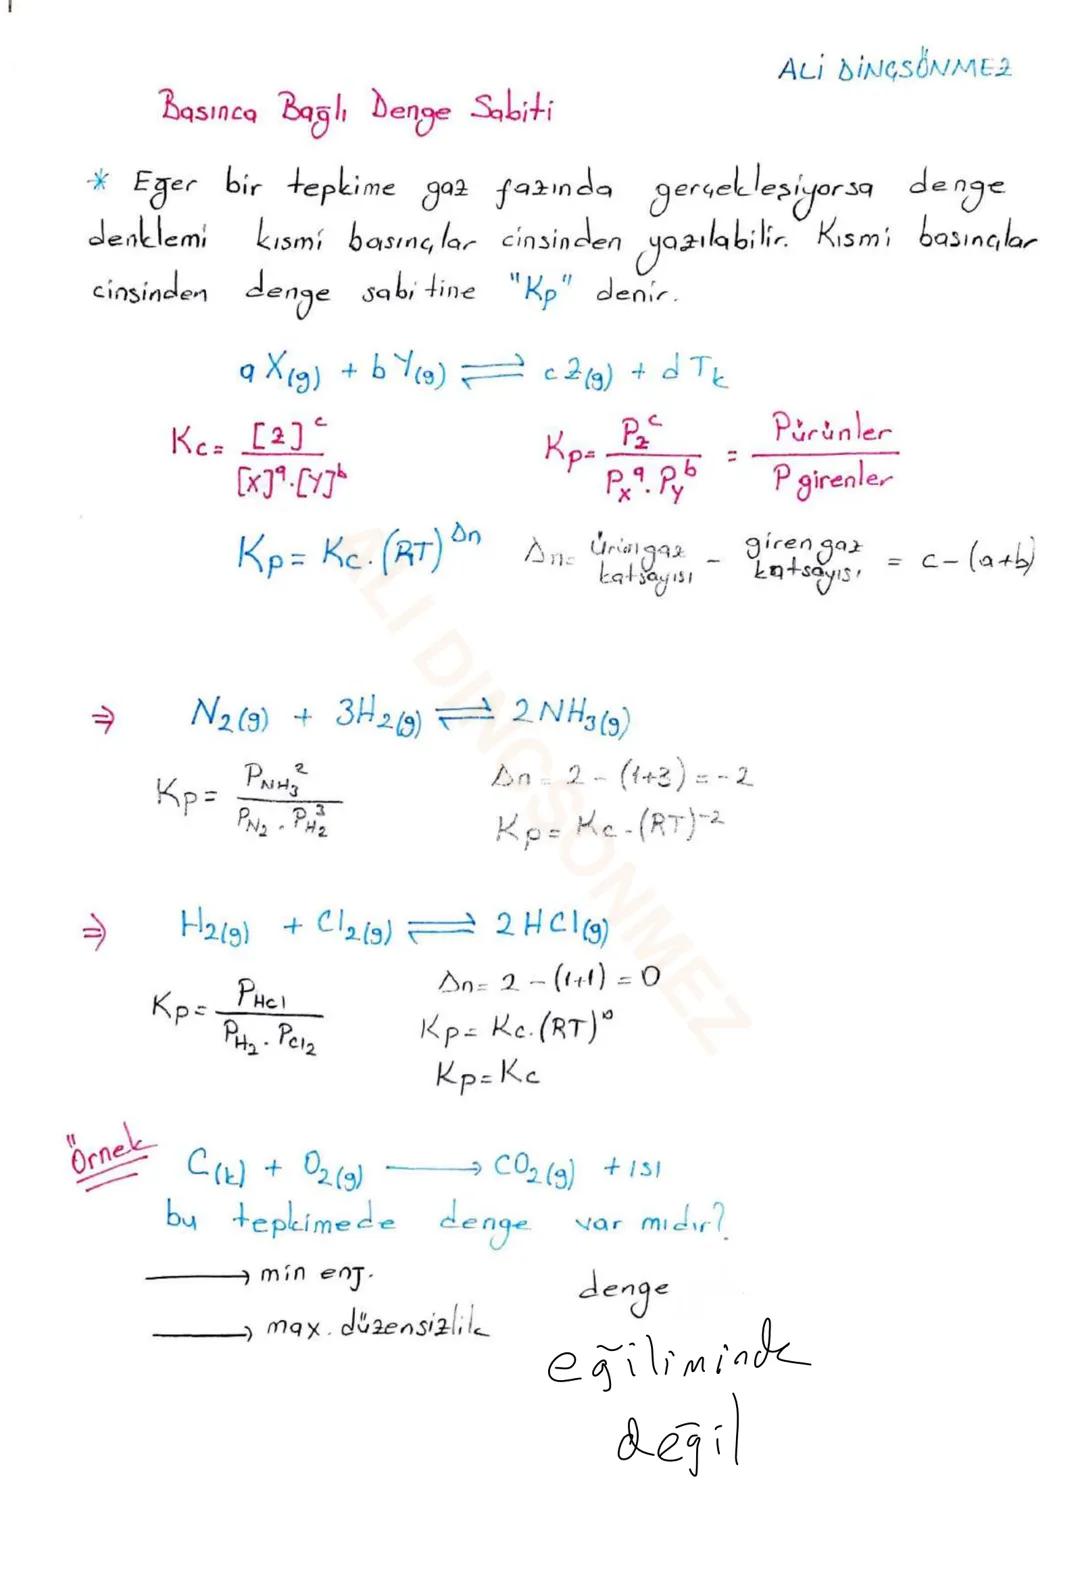 ALİ DİNÇSÖNMEZ
Basınca Bağlı Denge Sabiti
* Eğer bir tepkime gaz fazında gerçekleşiyorsa denge
denklemi kısmi basınçlar cinsinden yazılabilir. Kısmi basınçlar
cinsinden denge sabitine "Kp" denir.
a X(g) + b Y(g) ⇌ c Z(g) + d Tk
Kc = [Z]^c / [X]^a . [Y]^b Kp = Pz^c / Px^a . Py^b = Pürünler / P girenler
Kp = Kc . (RT)^Δn Δn = ürün gaz katsayısı - giren gaz katsayısı = c - (a+b)
⇒ N2(g) + 3H2(g) ⇌ 2NH3(g)
Kp = PNH3^2 / PN2 . PH2^3 Δn = 2 - (1+3) = -2
Kp = Kc . (RT)^-2
⇒ H2(g) + Cl2(g) ⇌ 2HCl(g)
Kp = PHCl / PH2 . PCl2 Δn = 2 - (1+1) = 0
Kp = Kc . (RT)^0
Kp = Kc
Örnek C(k) + O2(g) → CO2(g) + ısı
bu tepkimede denge var mıdır?
→ min enj. denge
→ max. düzensizlik eğiliminde
değil
ALI DINCSONMEZ